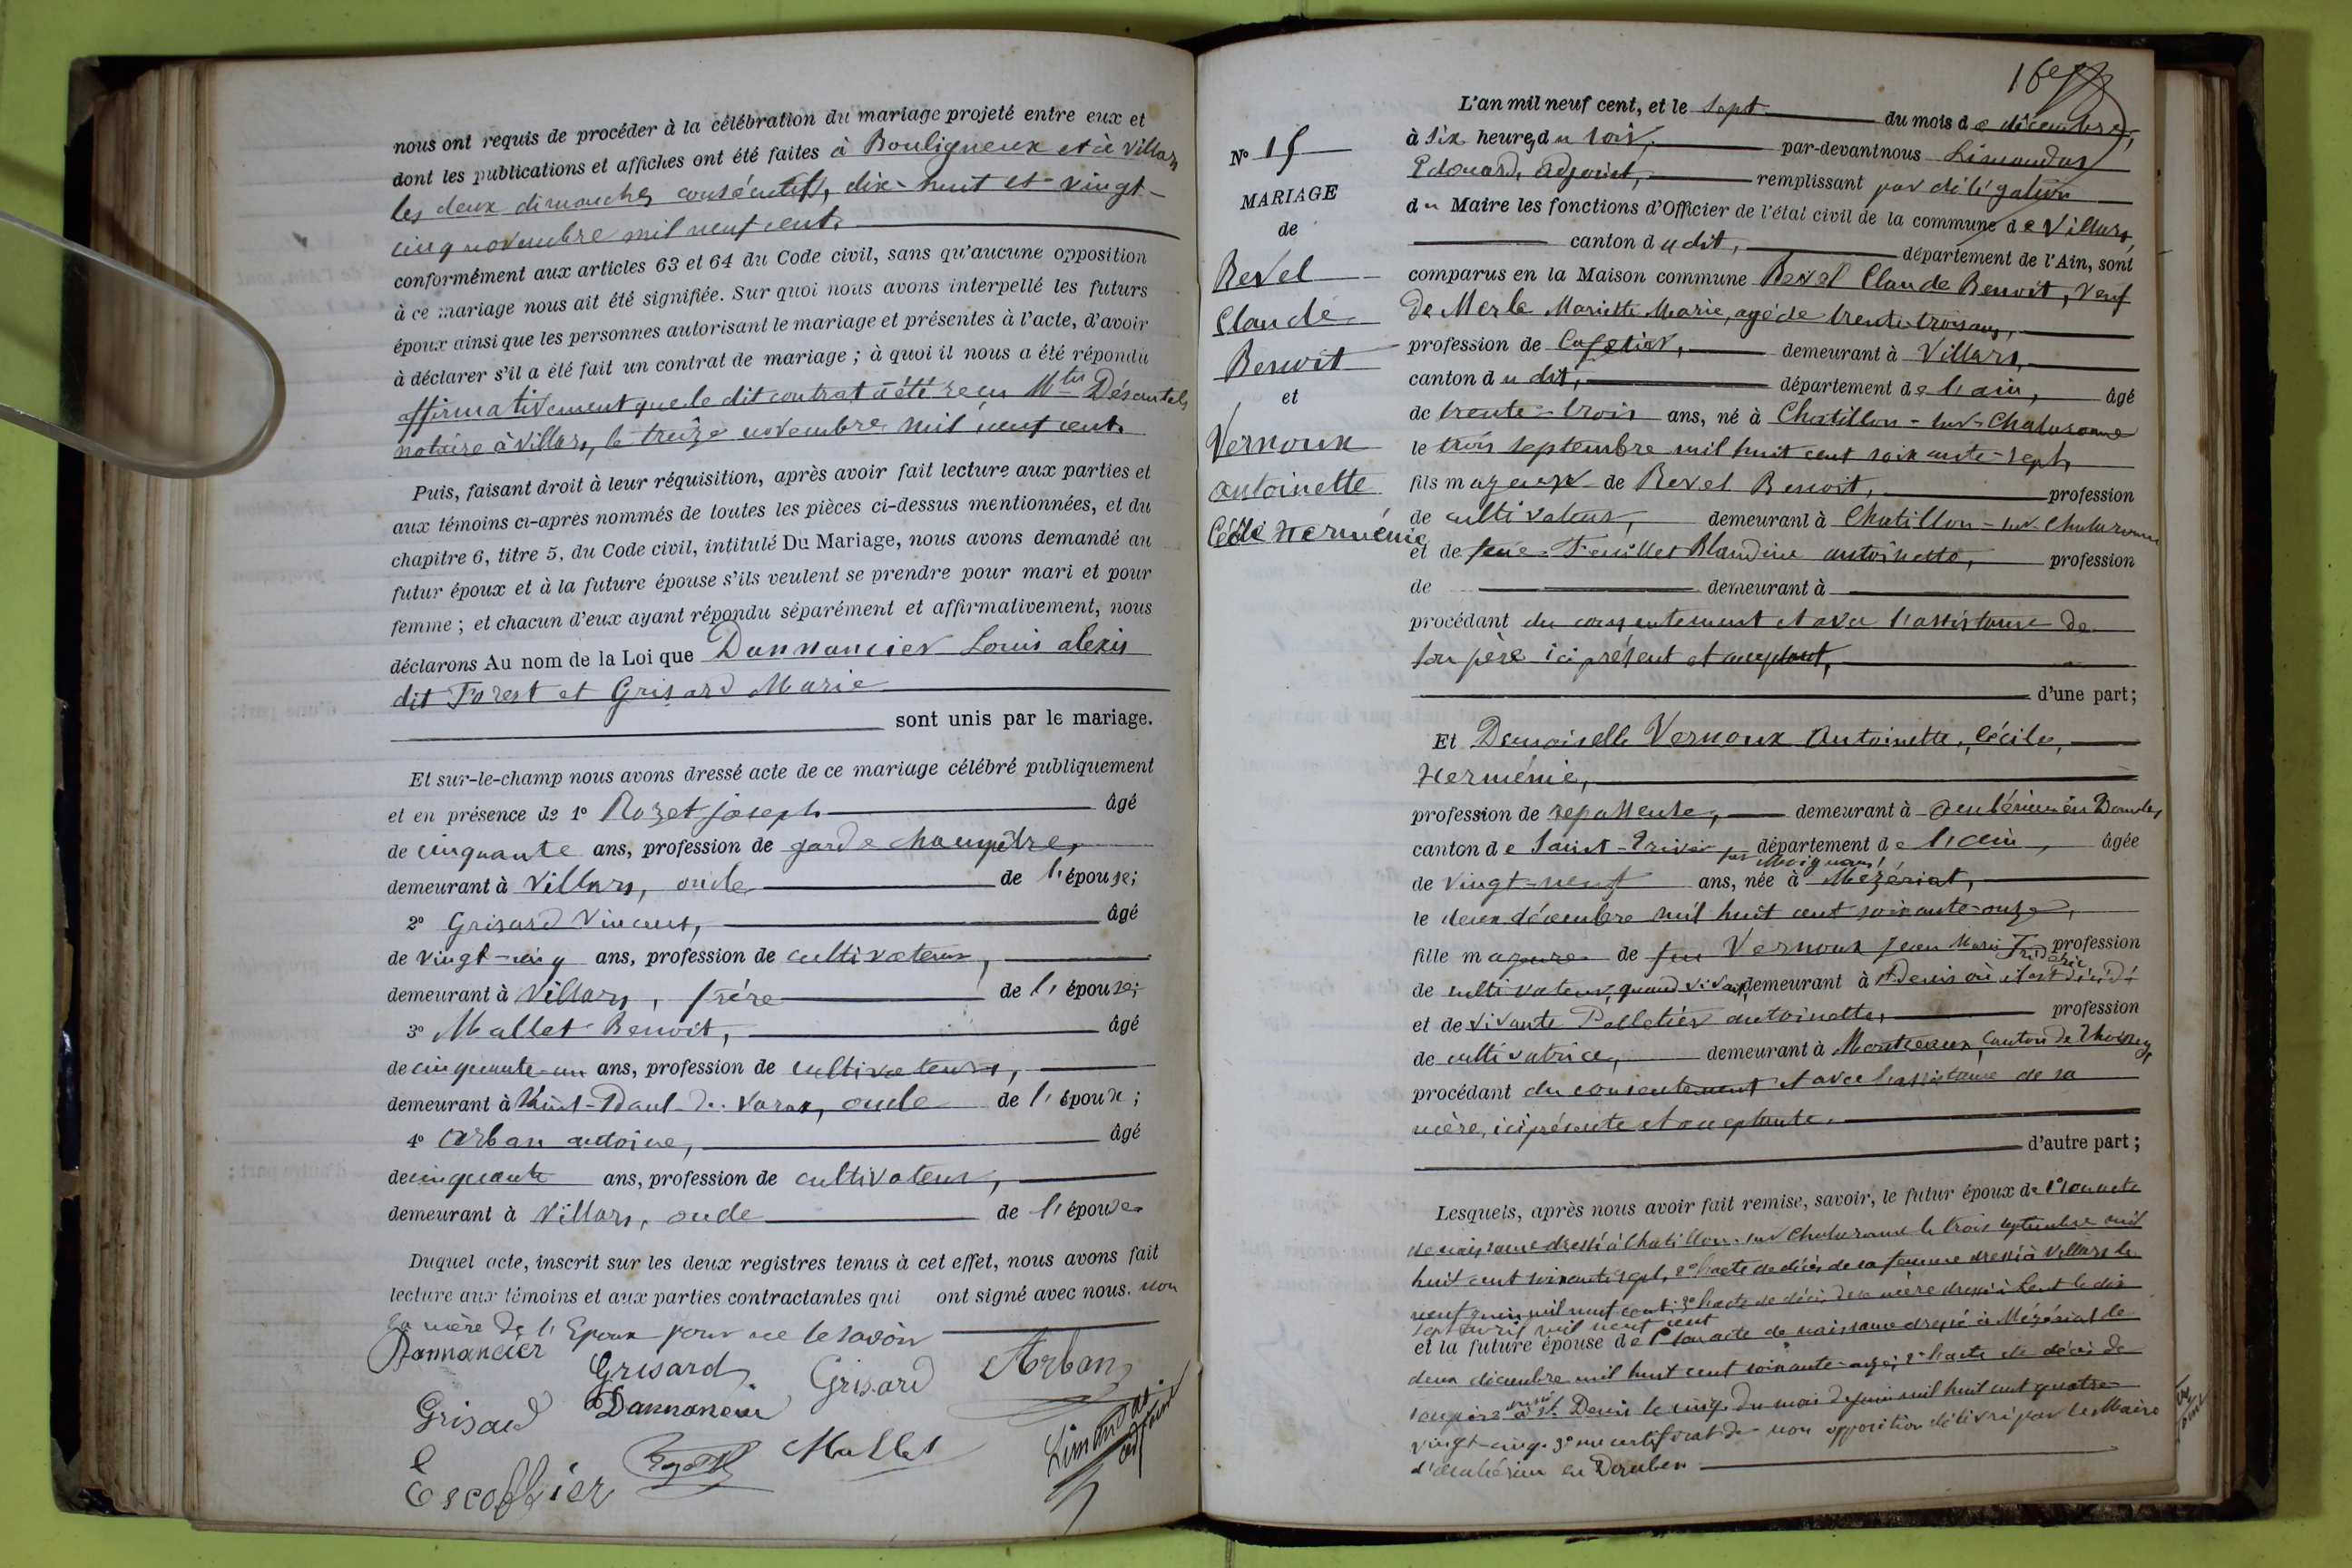 nous ont requis de procéder à la célébration du mariage projeté entre eux et
dont les publications et affiches ont été faites à Bouligneux et à Villars
les deux dimanches consécutifs, dix-huit et vingt-
cinq novembre mil neuf cent.
conformément aux articles 63 et 64 du Code civil, sans qu'aucune opposition
à ce mariage nous ait été signifiée. Sur quoi nous avons interpellé les futurs
époux ainsi que les personnes autorisant le mariage et présentes à l'acte, d'avoir
à déclarer s'il a été fait un contrat de mariage ; à quoi il nous a été répondu
affirmativement que le dit contrat a été reçu Mtre
notaire à Villars, le treize novembre mil neuf cent.
Puis, faisant droit à leur réquisition, après avoir fait lecture aux parties et
aux témoins ci-après nommés de toutes les pièces ci-dessus mentionnées, et du
chapitre 6, titre 5, du Code civil, intitulé Du Mariage, nous avons demandé au
futur époux et à la future épouse s'ils veulent se prendre pour mari et pour
femme ; et chacun d'eux ayant répondu séparément et affirmativement, nous
déclarons Au nom de la Loi que Dannancier Louis alexis
dit Forest et Grisard Marie
sont unis par le mariage.
Et sur-le-champ nous avons dressé acte de ce mariage célébré publiquement
et en présence de 1° Rozet joseph âgé
de cinquante ans, profession de garde champêtre,
demeurant à Villars, oncle de l'épouse;
2° Grisard Vincent, âgé
de vingt-cinq ans, profession de cultivateur,
demeurant à Villars, frère de l'épouse;
3° Mallet Benoit, âgé
de cinquante-un ans, profession de cultivateur,
demeurant à Saint-Paul-de-Varax, oncle de l'époux ;
4° Arban antoine, âgé
de cinquante ans, profession de cultivateur,
demeurant à Villars, oncle de l'épouse
Duquel acte, inscrit sur les deux registres tenus à cet effet, nous avons fait
lecture aux témoins et aux parties contractantes qui ont signé avec nous. non
la mère de l'Epoux pour ne le savoir
Dannancier Grisard Grisard Arban
Grisard Dannancier
Mallet Limandas adjoint
Escoffier
16e
N° 15
MARIAGE
de
Revel
Claude
Benoit
et
Vernoux
antoinette
Cécile Herménie
L'an mil neuf cent, et le sept du mois de décembre,
à six heures du soir, par-devant nous Limandas
Edouard, adjoint, remplissant par délégation
du Maire les fonctions d'Officier de l'état civil de la commune de Villars,
canton du dit, département de l'Ain, sont
comparus en la Maison commune Revel Claude Benoit, Veuf
de Merle Mariette Marie, agé de trente-trois ans,
profession de Cafetier, demeurant à Villars,
canton du dit, département de l'ain, âgé
de trente-trois ans, né à Chatillon-sur-Chalaronne
le trois septembre mil huit cent soixante-sept,
fils majeur de Revel Benoit, profession
de cultivateur, demeurant à Chatillon-sur-Chalaronne
et de feue Feuillet Blandine antoinette, profession
de demeurant à
procédant du consentement et avec l'assistance de
son père ici présent et acceptant,
d'une part;
Et Demoiselle Vernoux Antoinette, Cécile,
Herménie,
profession de repasseuse, demeurant à Ambérieux en Dombes,
canton de Saint-Trivier sur Moignans, département de l'ain, âgée
de vingt-neuf ans, née à Mézériat,
le deux décembre mil huit cent soixante-onze,
fille majeure de feu Vernoux Jean Marie Frédéric profession
de cultivateur, quand vivait, demeurant à St Denis où il est décédé
et de vivante Pelletier antoinette, profession
de cultivatrice, demeurant à Montceaux, canton de Thoissey,
procédant du consentement et avec l'assistance de sa
mère, ici présente et acceptante.
d'autre part;
Lesquels, après nous avoir fait remise, savoir, le futur époux de 1° son acte
de naissance dressé à Chatillon-sur-Chalaronne le trois septembre mil
huit cent soixante sept, 2° l'acte de décès de sa femme dressé à Villars le
neuf juin mil neuf cent; 3° l'acte de décès de sa mère dressé à le dix
sept avril mil neuf cent
et la future épouse de 1° son acte de naissance dressé à Mézériat le
deux décembre mil huit cent soixante-onze; 2° l'acte de décès de
son père dressé à St. Denis le cinq du mois de juin mil huit cent quatre
vingt-cinq. 3° un certificat de non opposition délivré par le Maire
d'Ambérieux en Dombes